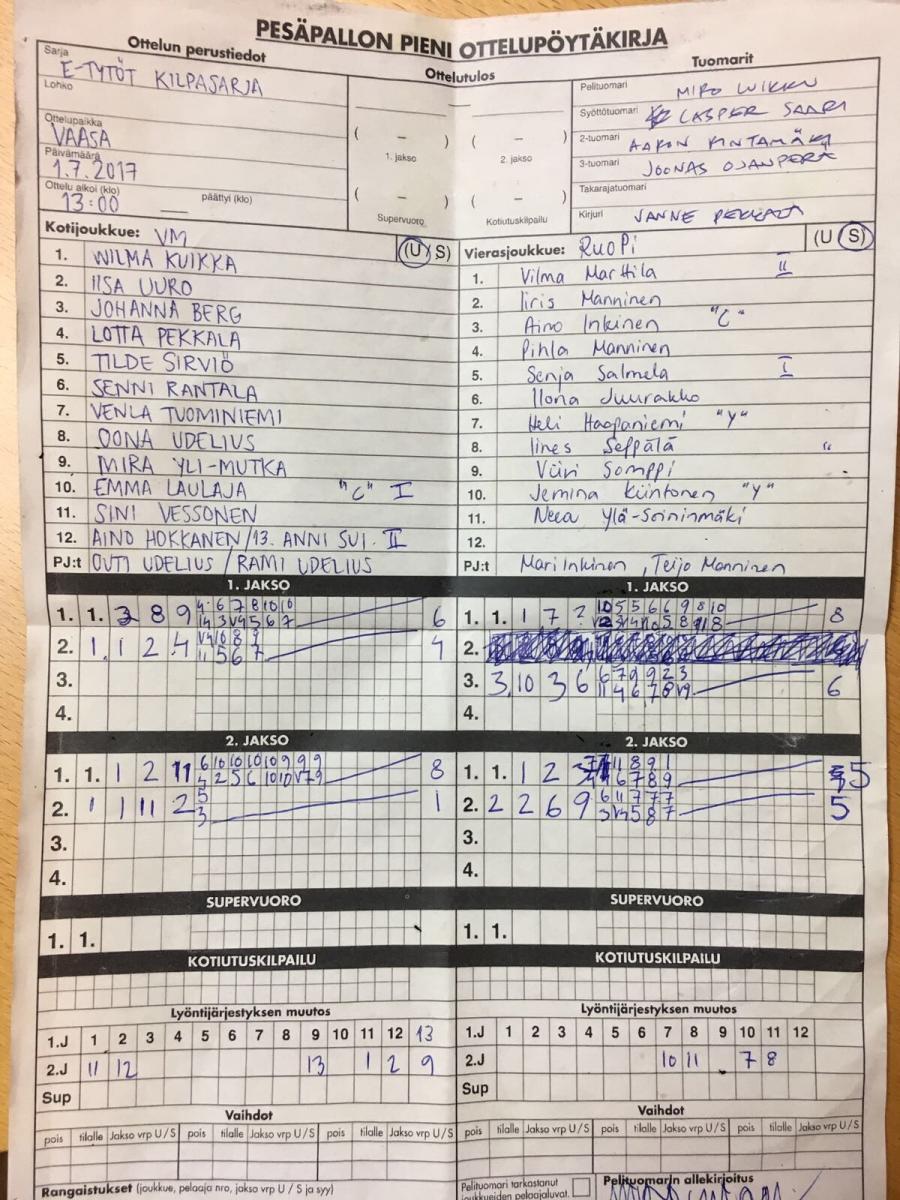 PESÄPALLON PIENI OTTELUPÖYTÄKIRJA
Ottelun perustiedot
Sarja
E-TYTÖT KILPASARJA
Lohko
Ottelupaikka
VAASA
Päivämäärä
1.7.2017
Ottelu alkoi (klo) päättyi (klo)
13:00
Ottelutulos
( – ) ( – )
1. jakso 2. jakso
( – ) ( – )
Supervuoro Kotiutuskilpailu
Tuomarit
Pelituomari MIRO
Syöttötuomari CASPER SAARI
2-tuomari AARON RINTAMÄKI
3-tuomari JOONAS OJANPERÄ
Takarajatuomari
Kirjuri JANNE PEKKALA
Kotijoukkue: VM (U / S)
1. WILMA KUIKKA
2. IISA UURO
3. JOHANNA BERG
4. LOTTA PEKKALA
5. TILDE SIRVIÖ
6. SENNI RANTALA
7. VENLA TUOMINIEMI
8. OONA UDELIUS
9. MIRA YLI-MUTKA
10. EMMA LAULAJA "C" I
11. SINI VESSONEN
12. AINO HOKKANEN / 13. ANNI SUI. II
PJ:t OUTI UDELIUS / RAMI UDELIUS
Vierasjoukkue: RuoPi (U S)
1. Vilma Marttila II
2. Iiris Manninen
3. Aino Inkinen "C"
4. Pihla Manninen
5. Senja Salmela I
6. Ilona Juurakko
7. Heli Haapaniemi "Y"
8. Iines Seppälä "
9. Viivi Somppi
10. Jemina Kiintonen "Y"
11. Neea Ylä-Soininmäki
12.
PJ:t Mari Inkinen, Teijo Manninen
1. JAKSO
1. 1. 3 8 9 4 6 7 8 10 10 6
2. 1 1 2 4 4
3.
4.
1. JAKSO
1. 1. 1 7 2 10 5 5 6 6 9 8 10 8
2.
3. 3 10 3 6 6 7 9 9 2 3 6
4.
2. JAKSO
1. 1. 1 2 11 6 10 10 10 10 9 9 9 8
4 2 5 6 10 10 V7 9
2. 1 1 11 2 5 1
3
3.
4.
2. JAKSO
1. 1. 1 2 11 8 9 1 5
6 7 8 9
2. 2 2 6 9 6 11 7 7 7 5
3.
4.
SUPERVUORO
1. 1.
SUPERVUORO
1. 1.
KOTIUTUSKILPAILU
KOTIUTUSKILPAILU
Lyöntijärjestyksen muutos
1.J 1 2 3 4 5 6 7 8 9 10 11 12 13
2.J 11 12 13 1 2 9
Sup
Lyöntijärjestyksen muutos
1.J 1 2 3 4 5 6 7 8 9 10 11 12
2.J 10 11 7 8
Sup
Vaihdot
pois tilalle Jakso vrp U / S pois tilalle Jakso vrp U / S pois tilalle Jakso vrp U / S
Vaihdot
pois tilalle Jakso vrp U / S pois tilalle Jakso vrp U / S pois tilalle Jakso vrp U / S
Rangaistukset (joukkue, pelaaja nro, jakso vrp U / S ja syy)
Pelituomari tarkastanut
joukkueiden pelaajaluvat.
Pelituomarin allekirjoitus